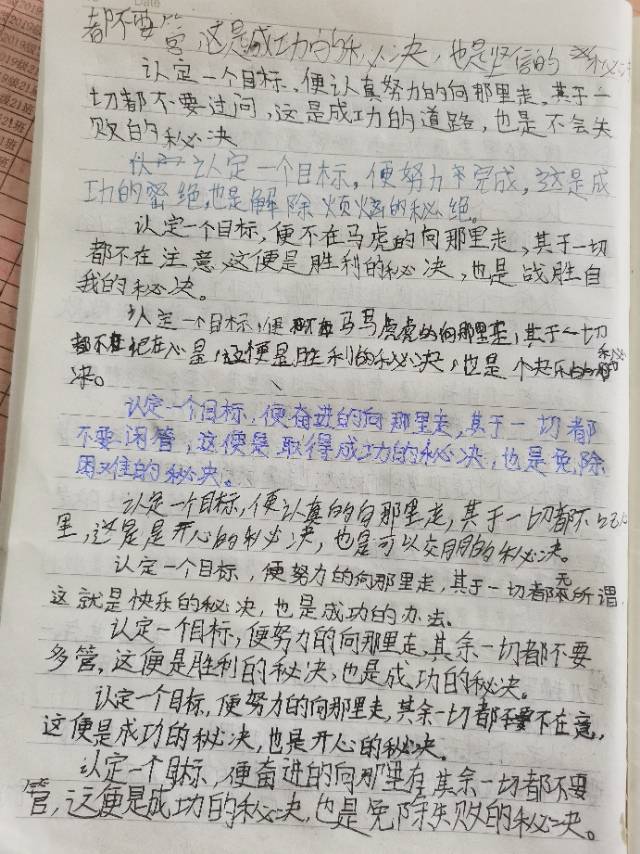 都不要管,这是成功的秘决,也是坚信的秘
认定一个目标、便认真努力的向那里走,其于一
切都不要过问,这是成功的道路,也是不会失
败的秘决
认定一个目标,便努力完成,这是成
功的密绝,也是解除烦恼的秘绝。
认定一个目标,便不在马虎的向那里走,其于一切
都不在注意,这便是胜利的秘决,也是战胜自
我的秘决。
认定一个目标,便不在马马虎虎的向那里走,其于一切
都不在记在心里,这便是胜利的秘决,也是个快乐的秘
决。
认定一个目标,便奋进的向那里走,其于一切都
不要闲管,这便是取得成功的秘决,也是免除
困难的秘决。
认定一个目标,便认真的向那里走,其于一切都不
里,这是是开心的秘决,也是可以交朋的秘决。
认定一个目标,便努力的向那里走,其于一切都无所谓,
这就是快乐的秘决,也是成功的办法。
认定一个目标,便努力的向那里走,其余一切都不要
多管,这便是胜利的秘决,也是成功的秘决。
认定一个目标,便努力的向那里走,其余一切都不在意,
这便是成功的秘决,也是开心的秘决。
认定一个目标,便奋进的向那里在其余一切都不要
管,这便是成功的秘决,也是免除失败的秘决。